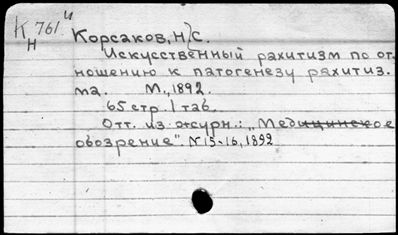 К 761 и
н
Корсаков, Н.С.
Искусственный рахитизм по от-
ношению к патогенезу рахитиз-
ма. М., 1892.
65 стр. 1 таб.
Отт. из журн.: „Медицинское
обозрение". N15-16, 1892